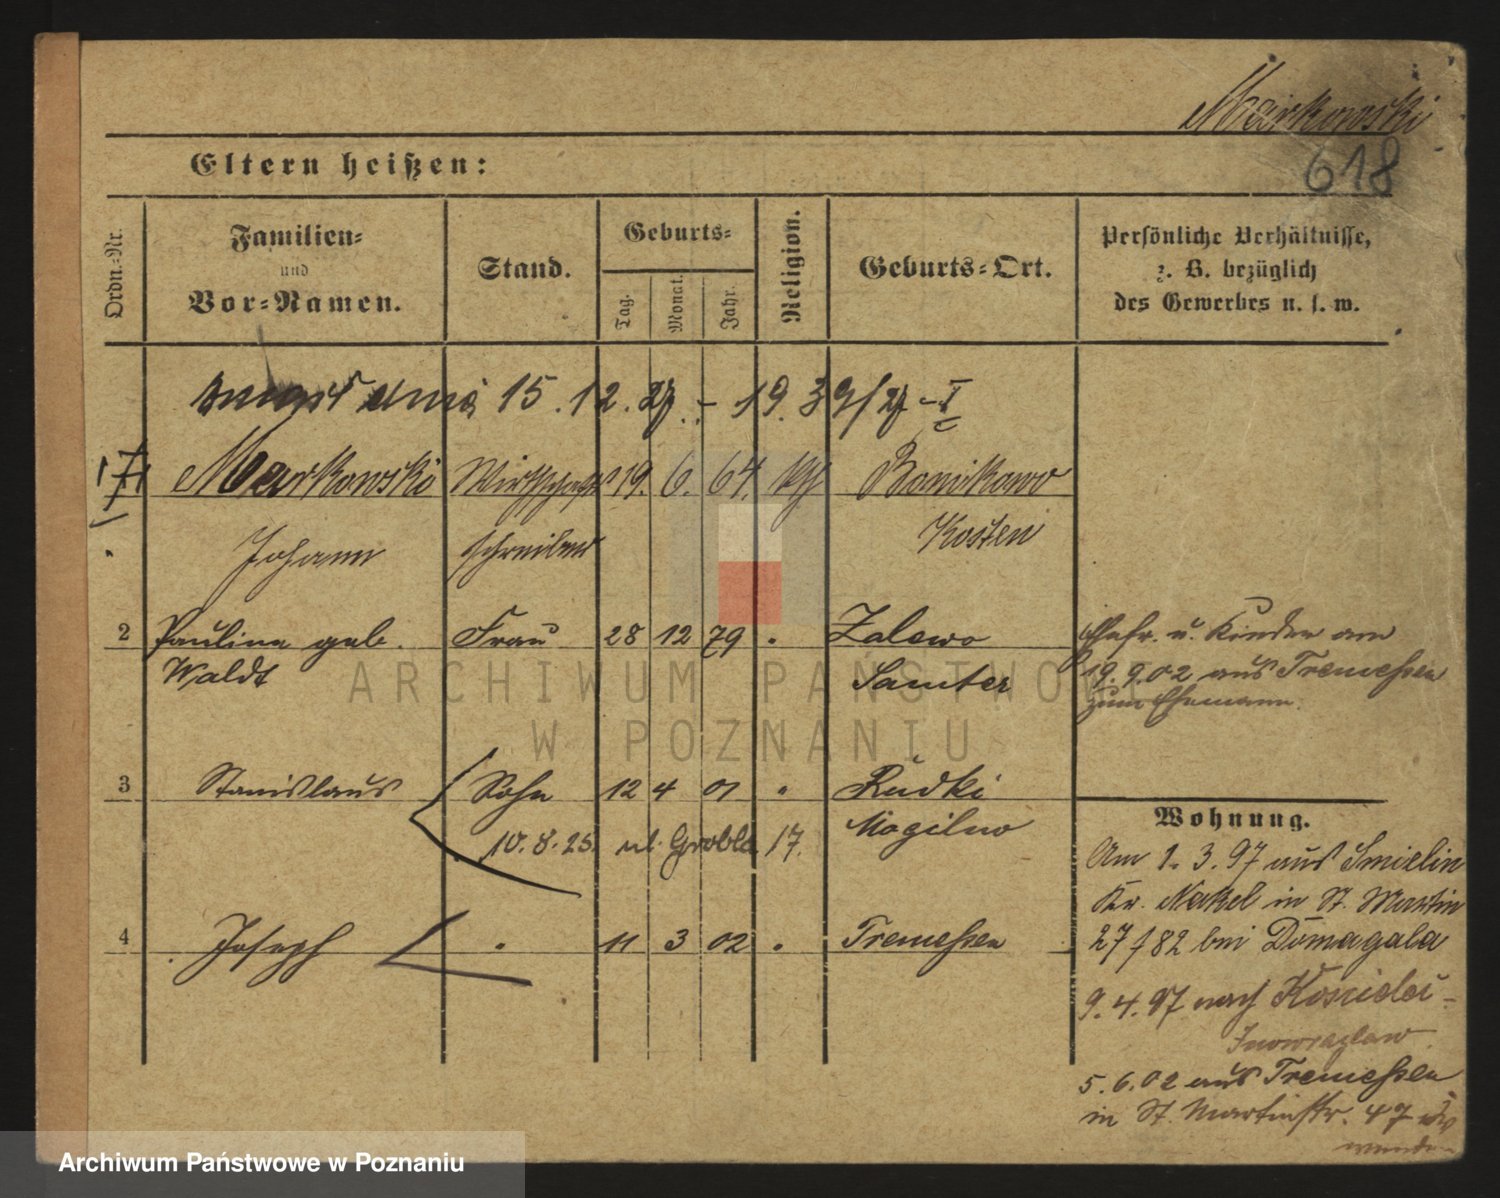 Markowski
618
Eltern heißen:
Ordn.-Nr.
Familien-
und
Vor-Namen.
Stand.
Geburts-
Tag.
Monat.
Jahr.
Religion.
Geburts-Ort.
Persönliche Verhältnisse,
z. B. bezüglich
des Gewerbes u. s. w.
zmarł dnia 15.12.27. - 19.39/27 - I
1 Markowski Wirthschafts 19. 6. 64. kth
Johann schreiber Kosten
2 Pauline geb. Frau 28 12 79 " Zalewo
Waldt Samter
Ehefr. u. Kinder am
19.9.02 aus Tremessen
zum Ehemann.
3 Stanislaus Sohn 12 4 01 " Rudki
10.8.25. ul. Grobla 17. Mogilno
4 Joseph " 11 3 02 " Tremessen
Wohnung.
Am 1. 3. 97 aus
Kr. Nakel in St. Martin
27/82 bei Domagala
9.4.97 nach
Inowrazlaw.
5.6.02 aus Tremessen
in St. Martinstr. 47
ARCHIWUM PAŃSTWOWE
W POZNANIU
Archiwum Państwowe w Poznaniu